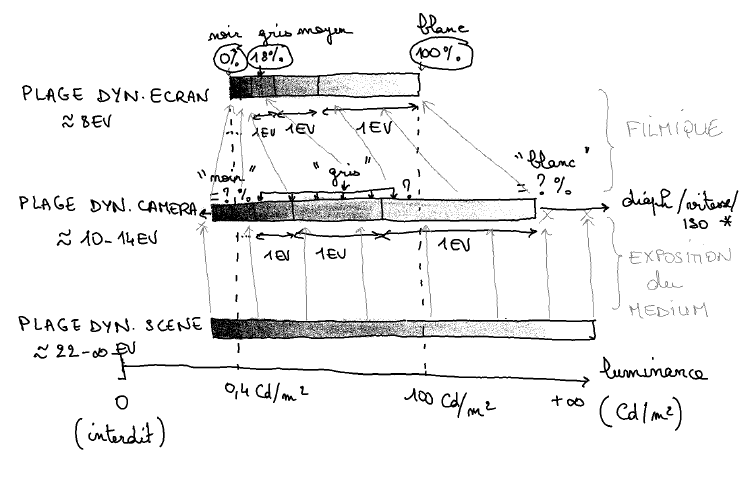 noir gris moyen blanc
0% 18% 100%
PLAGE DYN. ECRAN
≈ 8EV
1EV 1EV 1EV
FILMIQUE
"noir" "gris" "blanc"
= ? % ? = ? %
PLAGE DYN. CAMERA
diaph/vitesse/
ISO *
≈ 10-14EV
... 1EV 1EV 1EV
EXPOSITION
du
MEDIUM
PLAGE DYN. SCENE
≈ 22-∞ EV
luminance
0 0,4 Cd/m² 100 Cd/m² +∞ (Cd/m²)
(interdit)